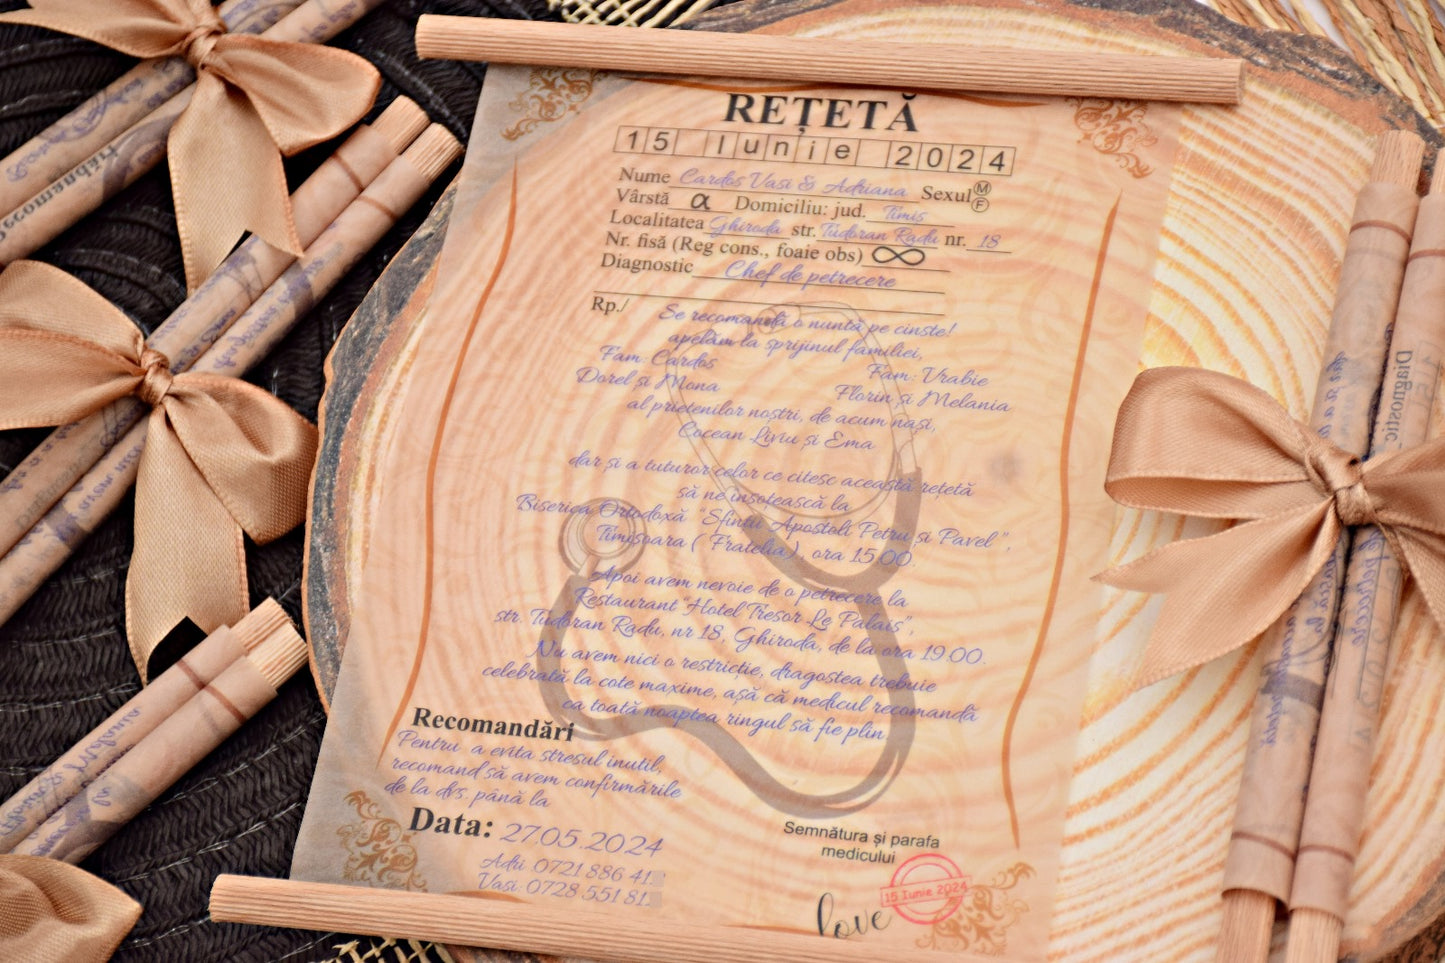 REȚETĂ
15 Iunie 2024
Nume Cardos Vasi & Adriana Sexul M F
Vârstă α Domiciliu: jud. Timiș
Localitatea Ghiroda str. Tudoran Radu nr. 18
Nr. fisă (Reg cons., foaie obs) ∞
Diagnostic Chef de petrecere
Rp./ Se recomandă o nuntă pe cinste!
apelăm la sprijinul familiei,
Fam: Cardos Fam: Vrabie
Dorel și Mona Florin și Melania
al prietenilor noștri, de acum nași,
Cocean Liviu și Ema
dar și a tuturor celor ce citesc această rețetă
să ne însoțească la
Biserica Ortodoxă "Sfinții Apostoli Petru și Pavel ",
Timișoara ( Fratelia), ora 15.00.
Apoi avem nevoie de o petrecere la
Restaurant "Hotel Tresor Le Palais",
str. Tudoran Radu, nr 18, Ghiroda, de la ora 19.00.
Nu avem nici o restricție, dragostea trebuie
celebrată la cote maxime, așă că medicul recomandă
ca toată noaptea ringul să fie plin.
Recomandări
Pentru a evita stresul inutil,
recomand să avem confirmările
de la dvs. până la
Data: 27.05.2024
Adri 0721 886 41
Vasi 0728 551 81
Semnătura și parafa
medicului
love
15 Iunie 2024
Diagnostic